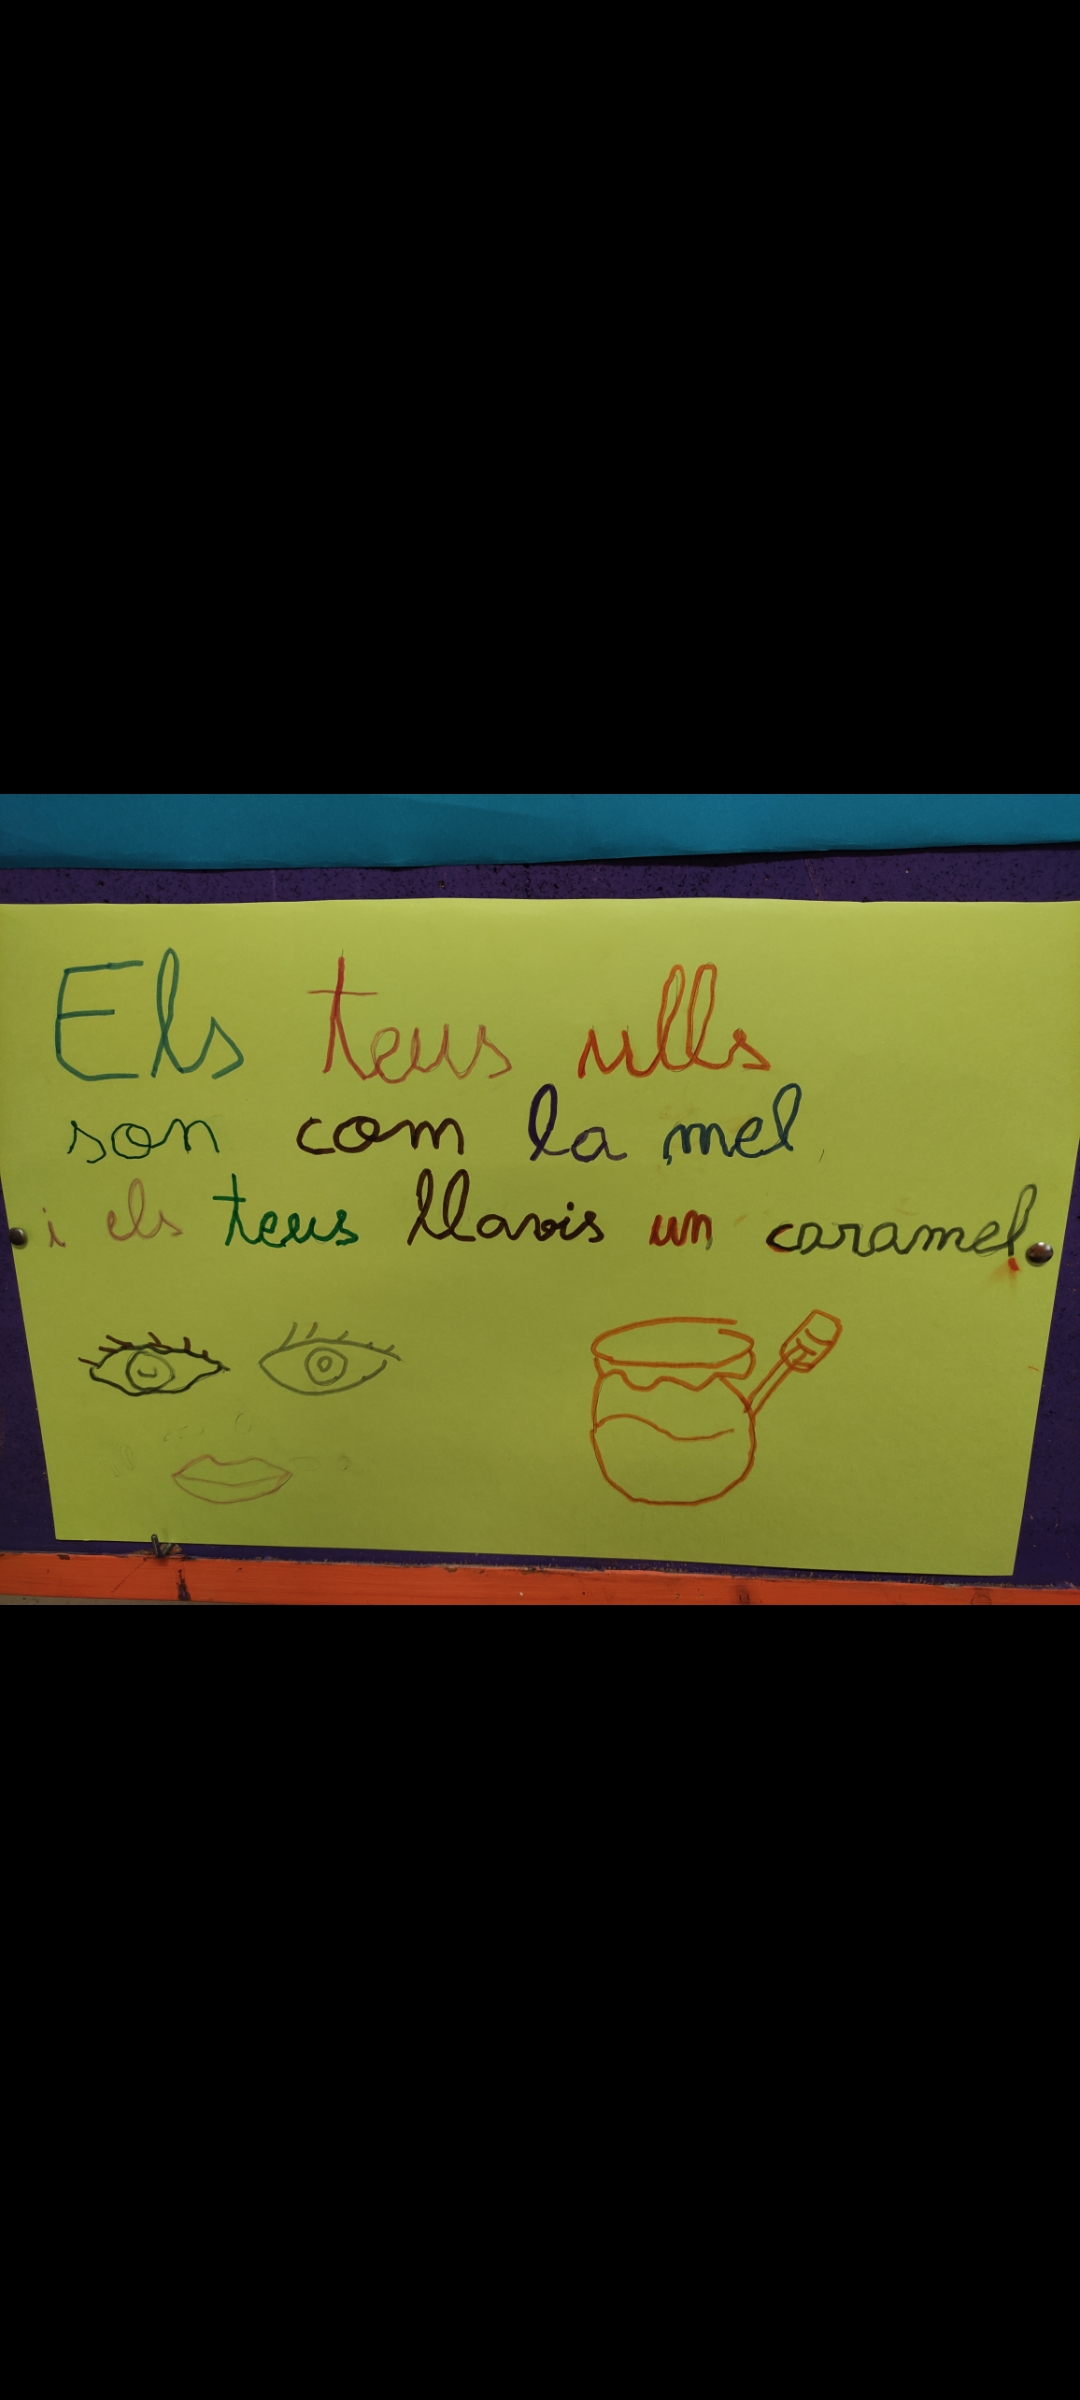 Els teus ulls
son com la mel
i els teus llavis un caramel.